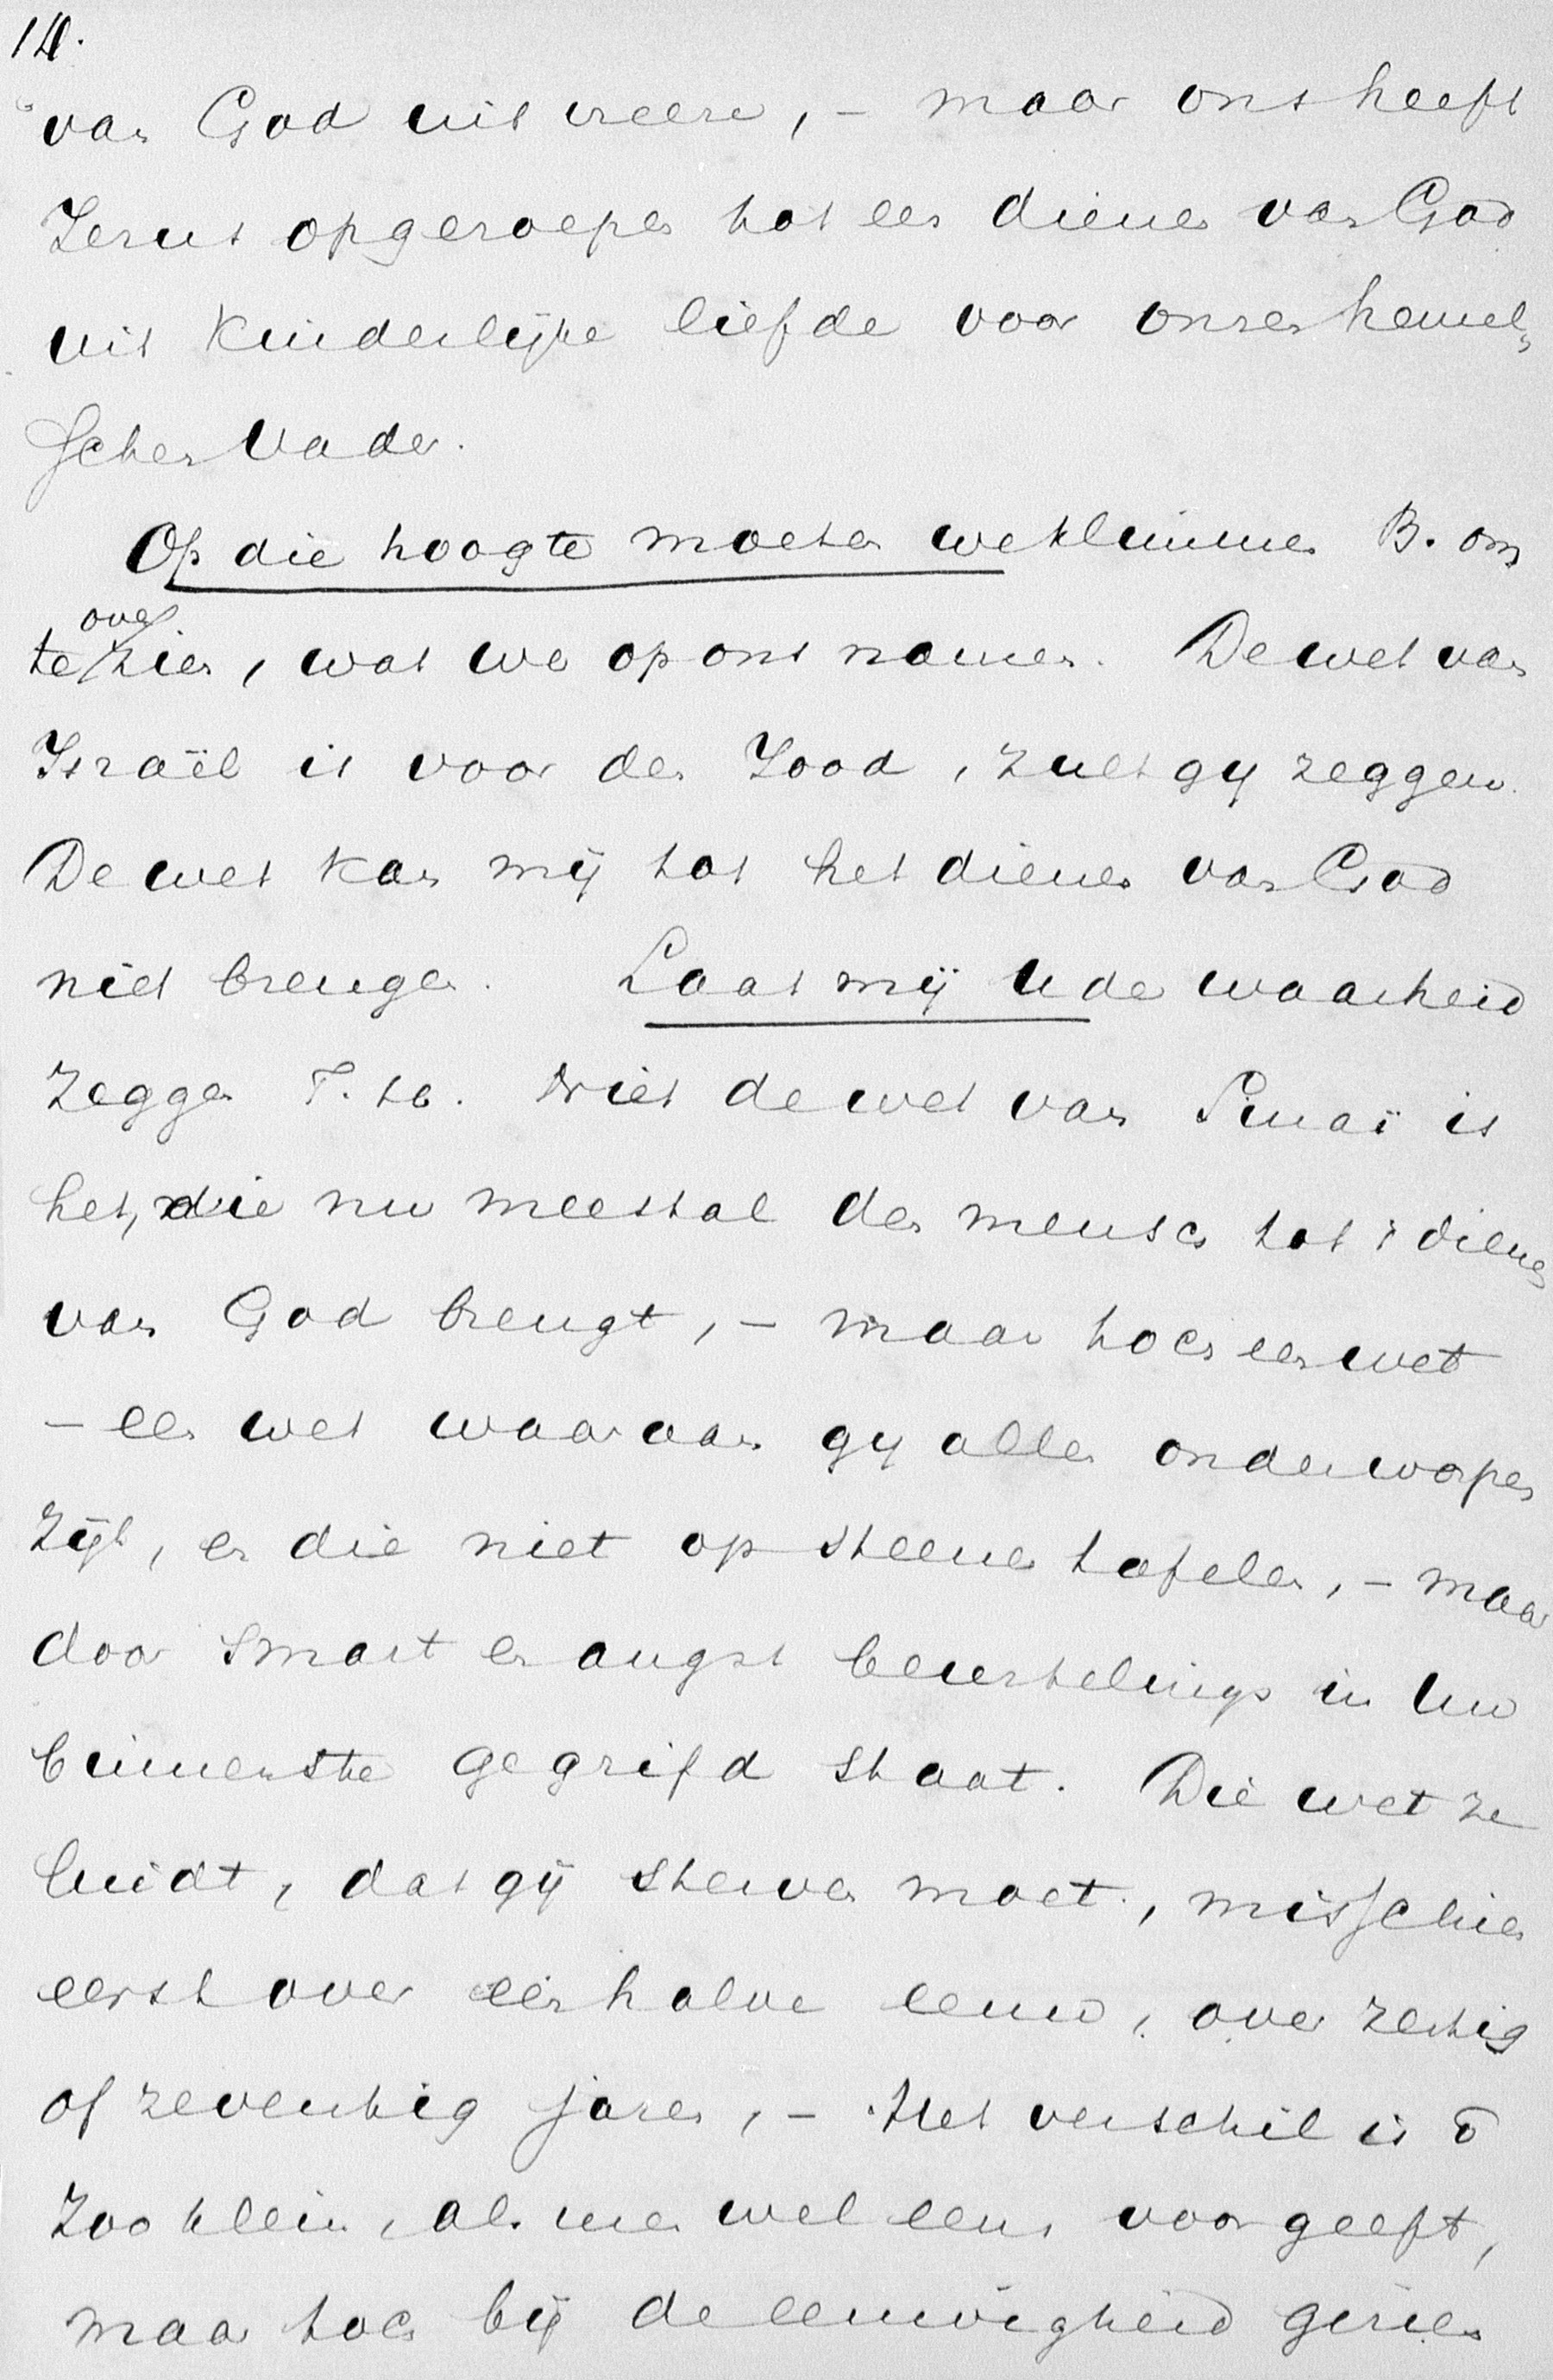 14.
van God uit vreeze, – maar ons heeft
Jezus opgeroepen tot een dienen van God
uit kinderlijke liefde voor onzen hemel-
schen Vader.
Op die hoogte moeten we klimmen B. om
te overzien, wat we op ons namen. De wet van
Israël is voor den Jood, zult gij zeggen.
De wet kan mij tot het dienen van God
niet brengen. Laat mij U de waarheid
zeggen T. te. Niet de wet van Sinaï is
het, die nu meestal den mensch tot 't dienen
van God brengt, – maar toch een wet
– een wet waaraan gij allen onderworpen
zijt, en die niet op steenen tafelen, – maar
door smart en angst beurtelings in Uw
binnenste gegrifd staat. Die wet ze
luidt, dat gij sterven moet, misschien
eerst over een halve eeuw, over zestig
of zeventig jaren, – Het verschil is õ
zoo klein, als men wel eens voorgeeft,
maar toch bij de eeuwigheid gezien